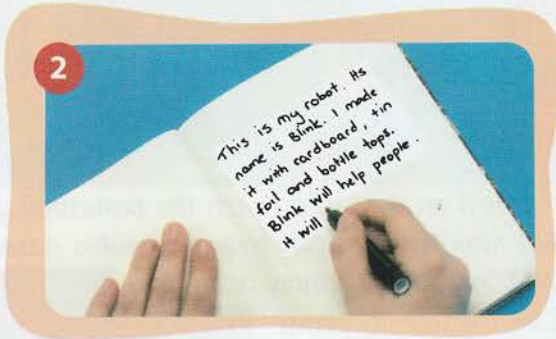 2
This is my robot. Its
name is Blink. I made
it with cardboard, tin
foil and bottle tops.
Blink will help people.
It will